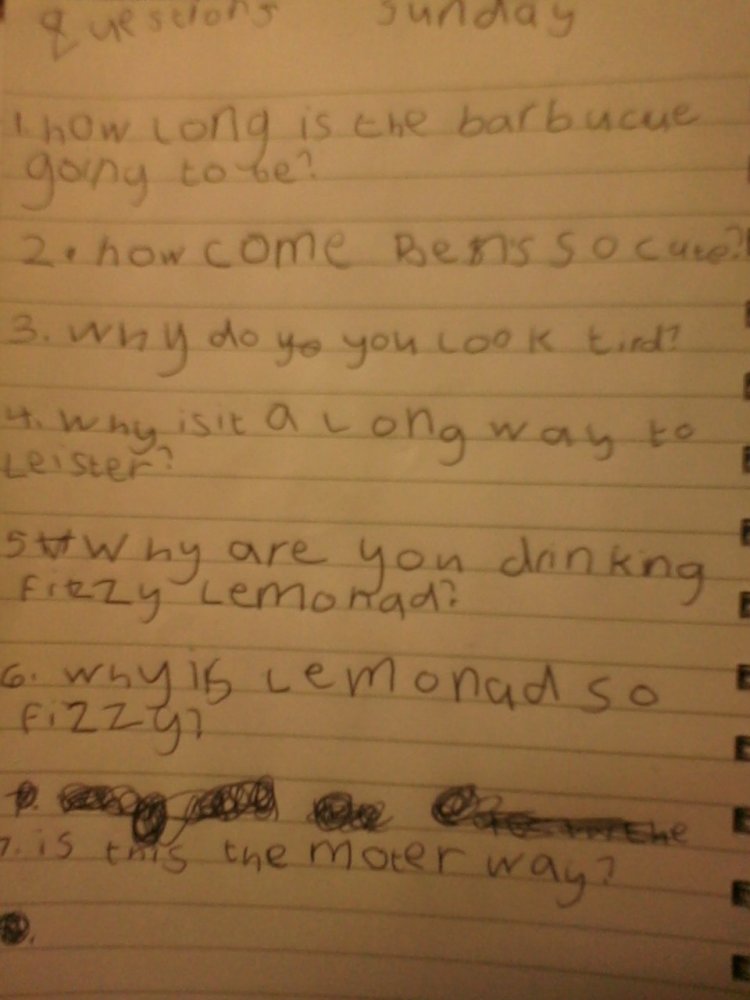 questions sunday
1. how long is the barbucue
going to be?
2. how come Ben's so cute?
3. why do yo you look tird?
4. why is it a long way to
Leister?
5 why are you drinking
fizzy Lemonad?
6. why is Lemonad so
fizzy?
the
7. is this the moter way?